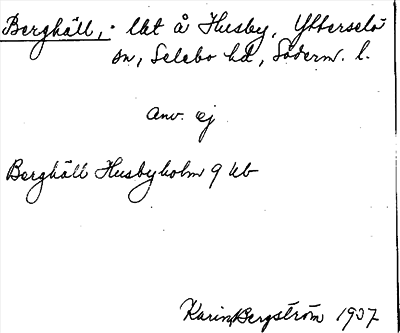 Berghäll, lht å Husby, Ytterselö
sn, Selebo hd, Söderm. l.
Anv. ej
Berghäll Husbyholm 9 kb
Karin Bergström 1937